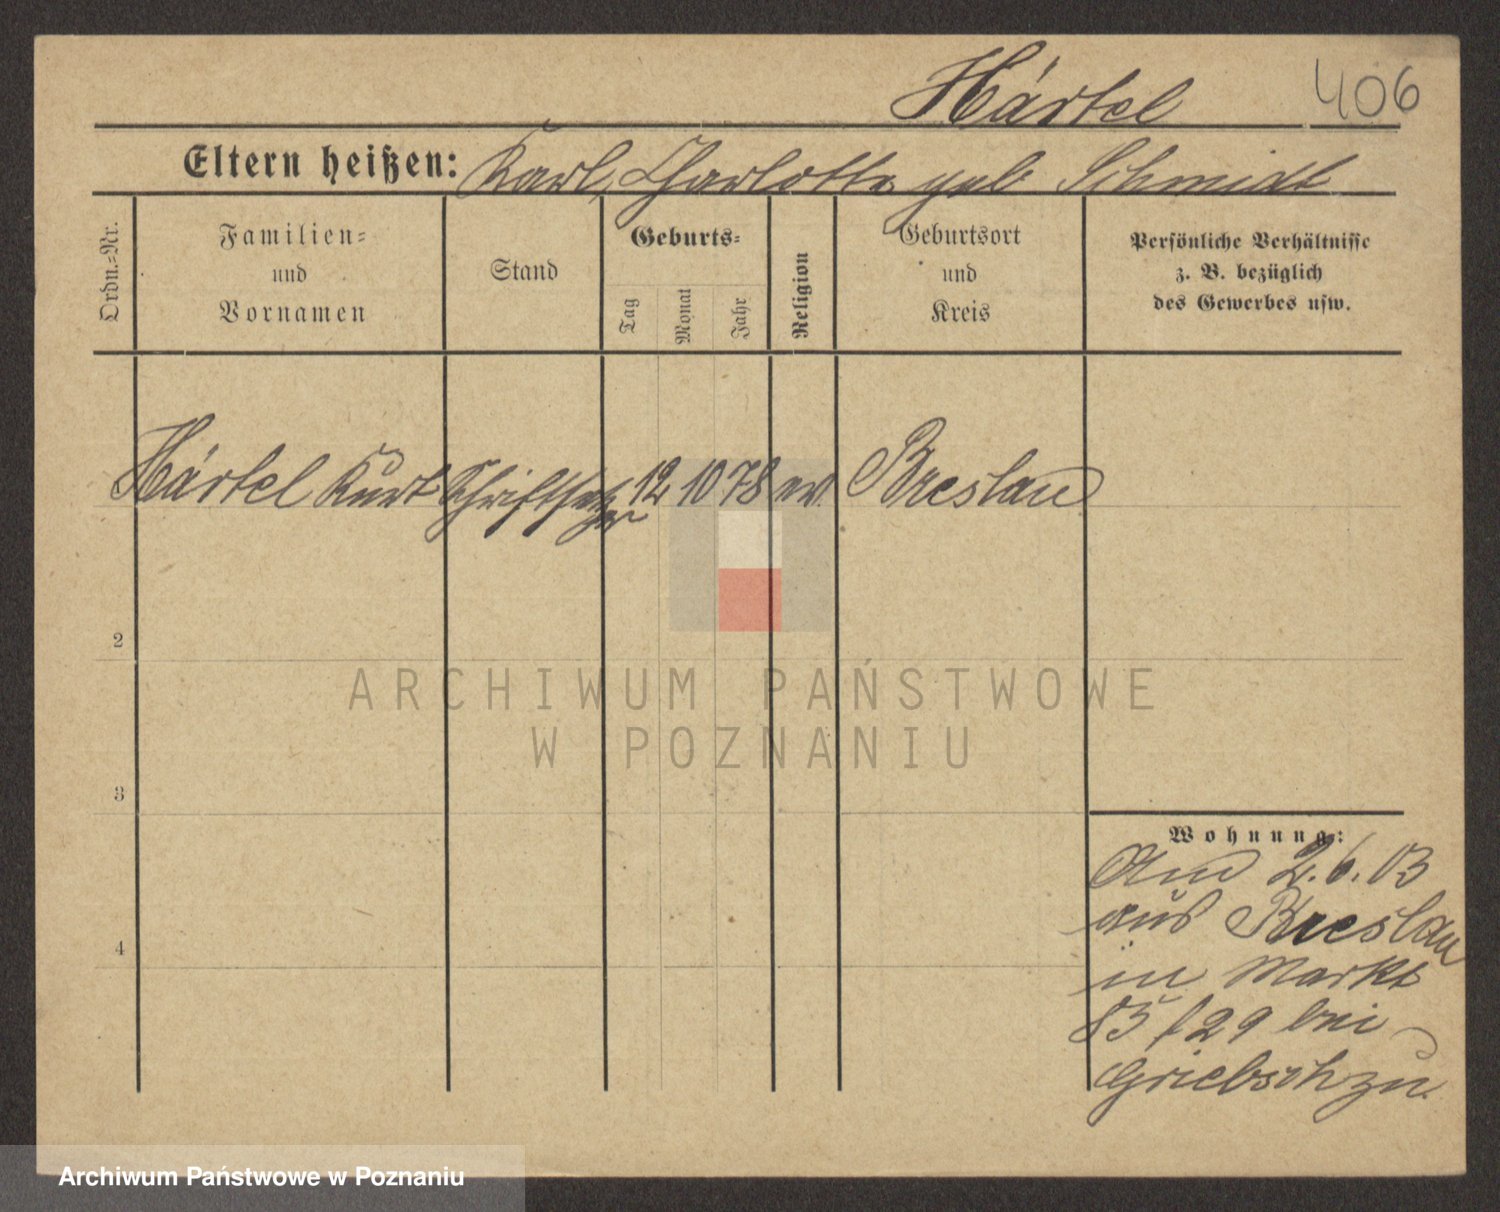 Härtel 406
Eltern heißen: Karl, Charlotte geb Schmidt
Ordn.-Nr.
Familien-
und
Vornamen
Stand
Geburts-
Tag
Monat
Jahr
Religion
Geburtsort
und
Kreis
Persönliche Verhältnisse
z. B. bezüglich
des Gewerbes usw.
Härtel Kurt Schriftsetzer 12 10 78 ev. Breslau
2
ARCHIWUM PAŃSTWOWE
W POZNANIU
3
Wohnung:
Am 2.6.03
aus Breslau
in Markt
85/29 bei
Griebsch zu.
4
Archiwum Państwowe w Poznaniu